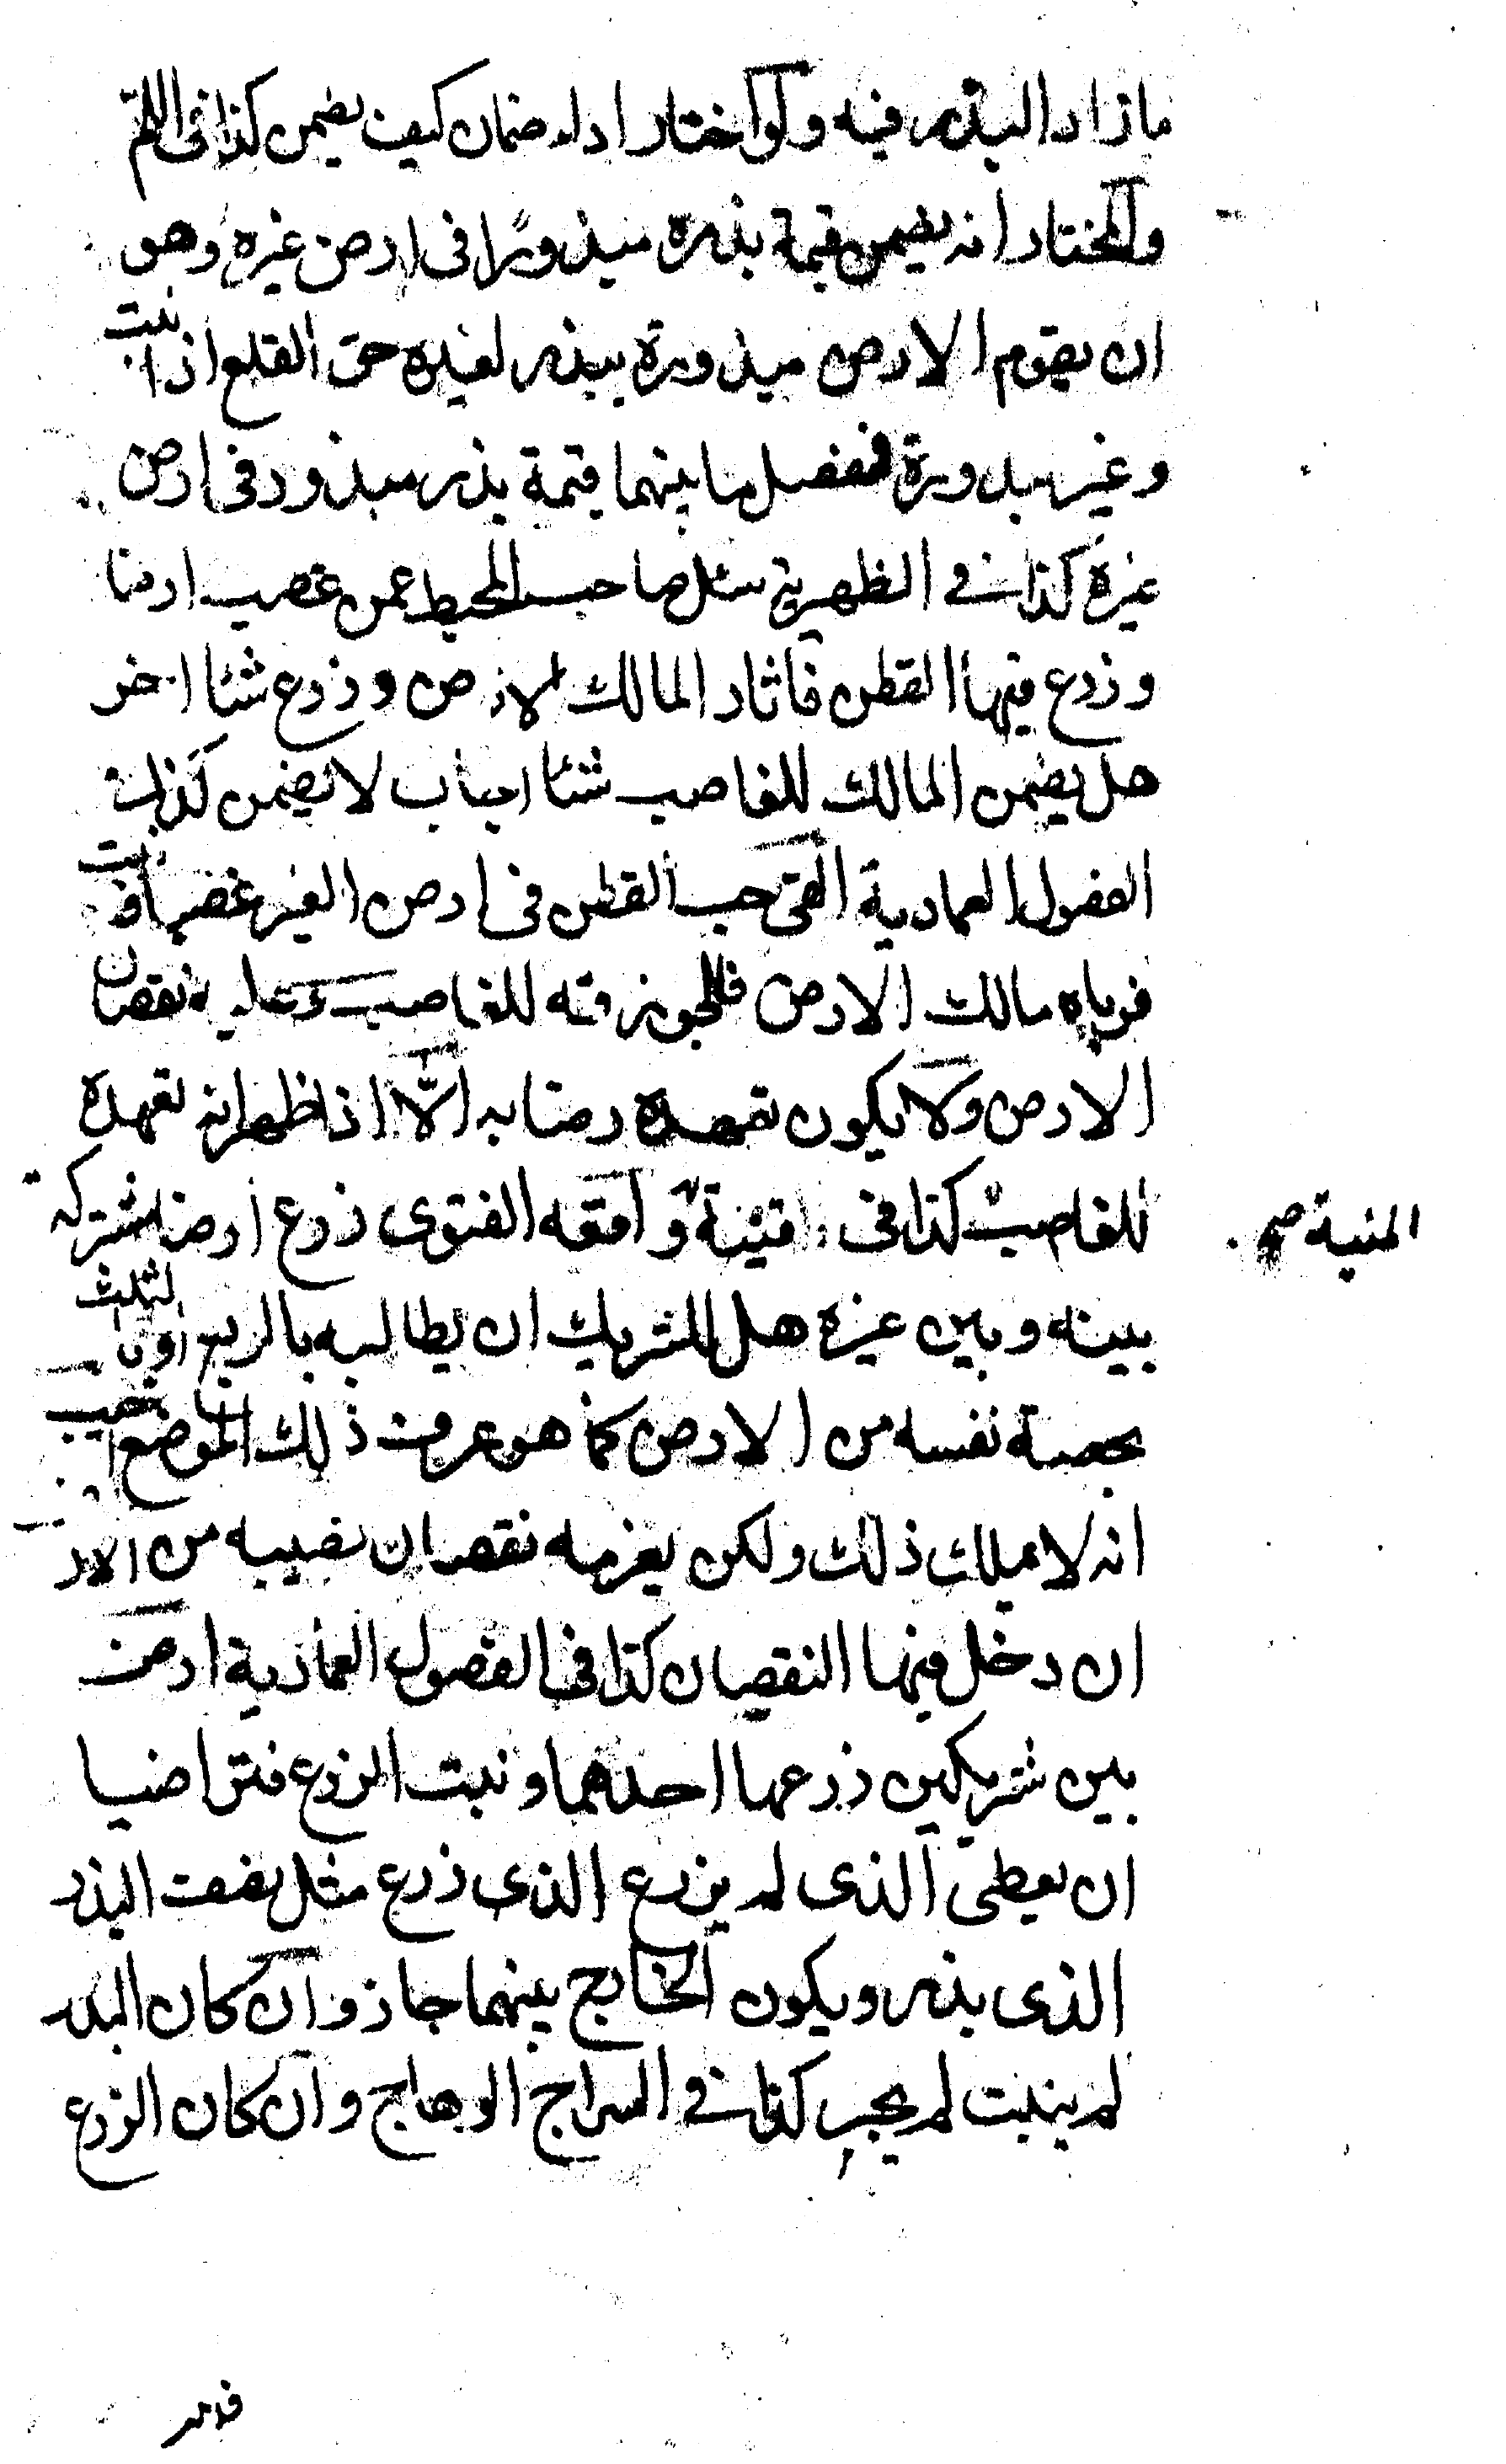 ما زاد البذر فيه ولو اختار اداء ضمان كيف يضمن كذا فى
والمختار انه يضمن قيمة بذره مبذورًا فى ارض غيره وهو
ان يقوم الارض مبذورة ببذر لغيره حق القلع اذا نبت
وغير مبذورة ففضل ما بينهما قيمة بذر مبذور فى ارض
غيره كذا في الظهرية سئل صاحب المحيط عمن غصب ارضا
وزرع فيها القطن فاثار المالك الارض وزرع شئا اخر
هل يضمن المالك للغاصب شئا اجاب لا يضمن كذا في
الفصول العمادية القى حب القطن فى ارض الغير غصبا فنبت
فرباه مالك الارض فالجوزقه للغاصب وعليه نقصان
الارض ولا يكون تعهده رضا به الّا اذا ظهر انه تعهده
للغاصب كذا فى قنية واقعه الفتوى زرع ارضا مشتركه
المنية صح
بينه وبين غيره هل للشريك ان يطالبه بالربع او بالثلث
بحصة نفسه من الارض كما هو عرف ذلك الموضع اجيب
انه لا يملك ذلك ولكن يغرمه نقصان نصيبه من الارض
ان دخل فيها النقصان كذا فى الفصول العمادية ارض
بين شريكين زرعها احدهما ونبت الزرع فتراضيا
ان يعطى الذى لم يزرع الذى زرع مثل نصف البذر
الذى بذر ويكون الخارج بينهما جاز وان كان البذر
لم ينبت لم يجز كذا في السراج الوهاج وان كان الزرع